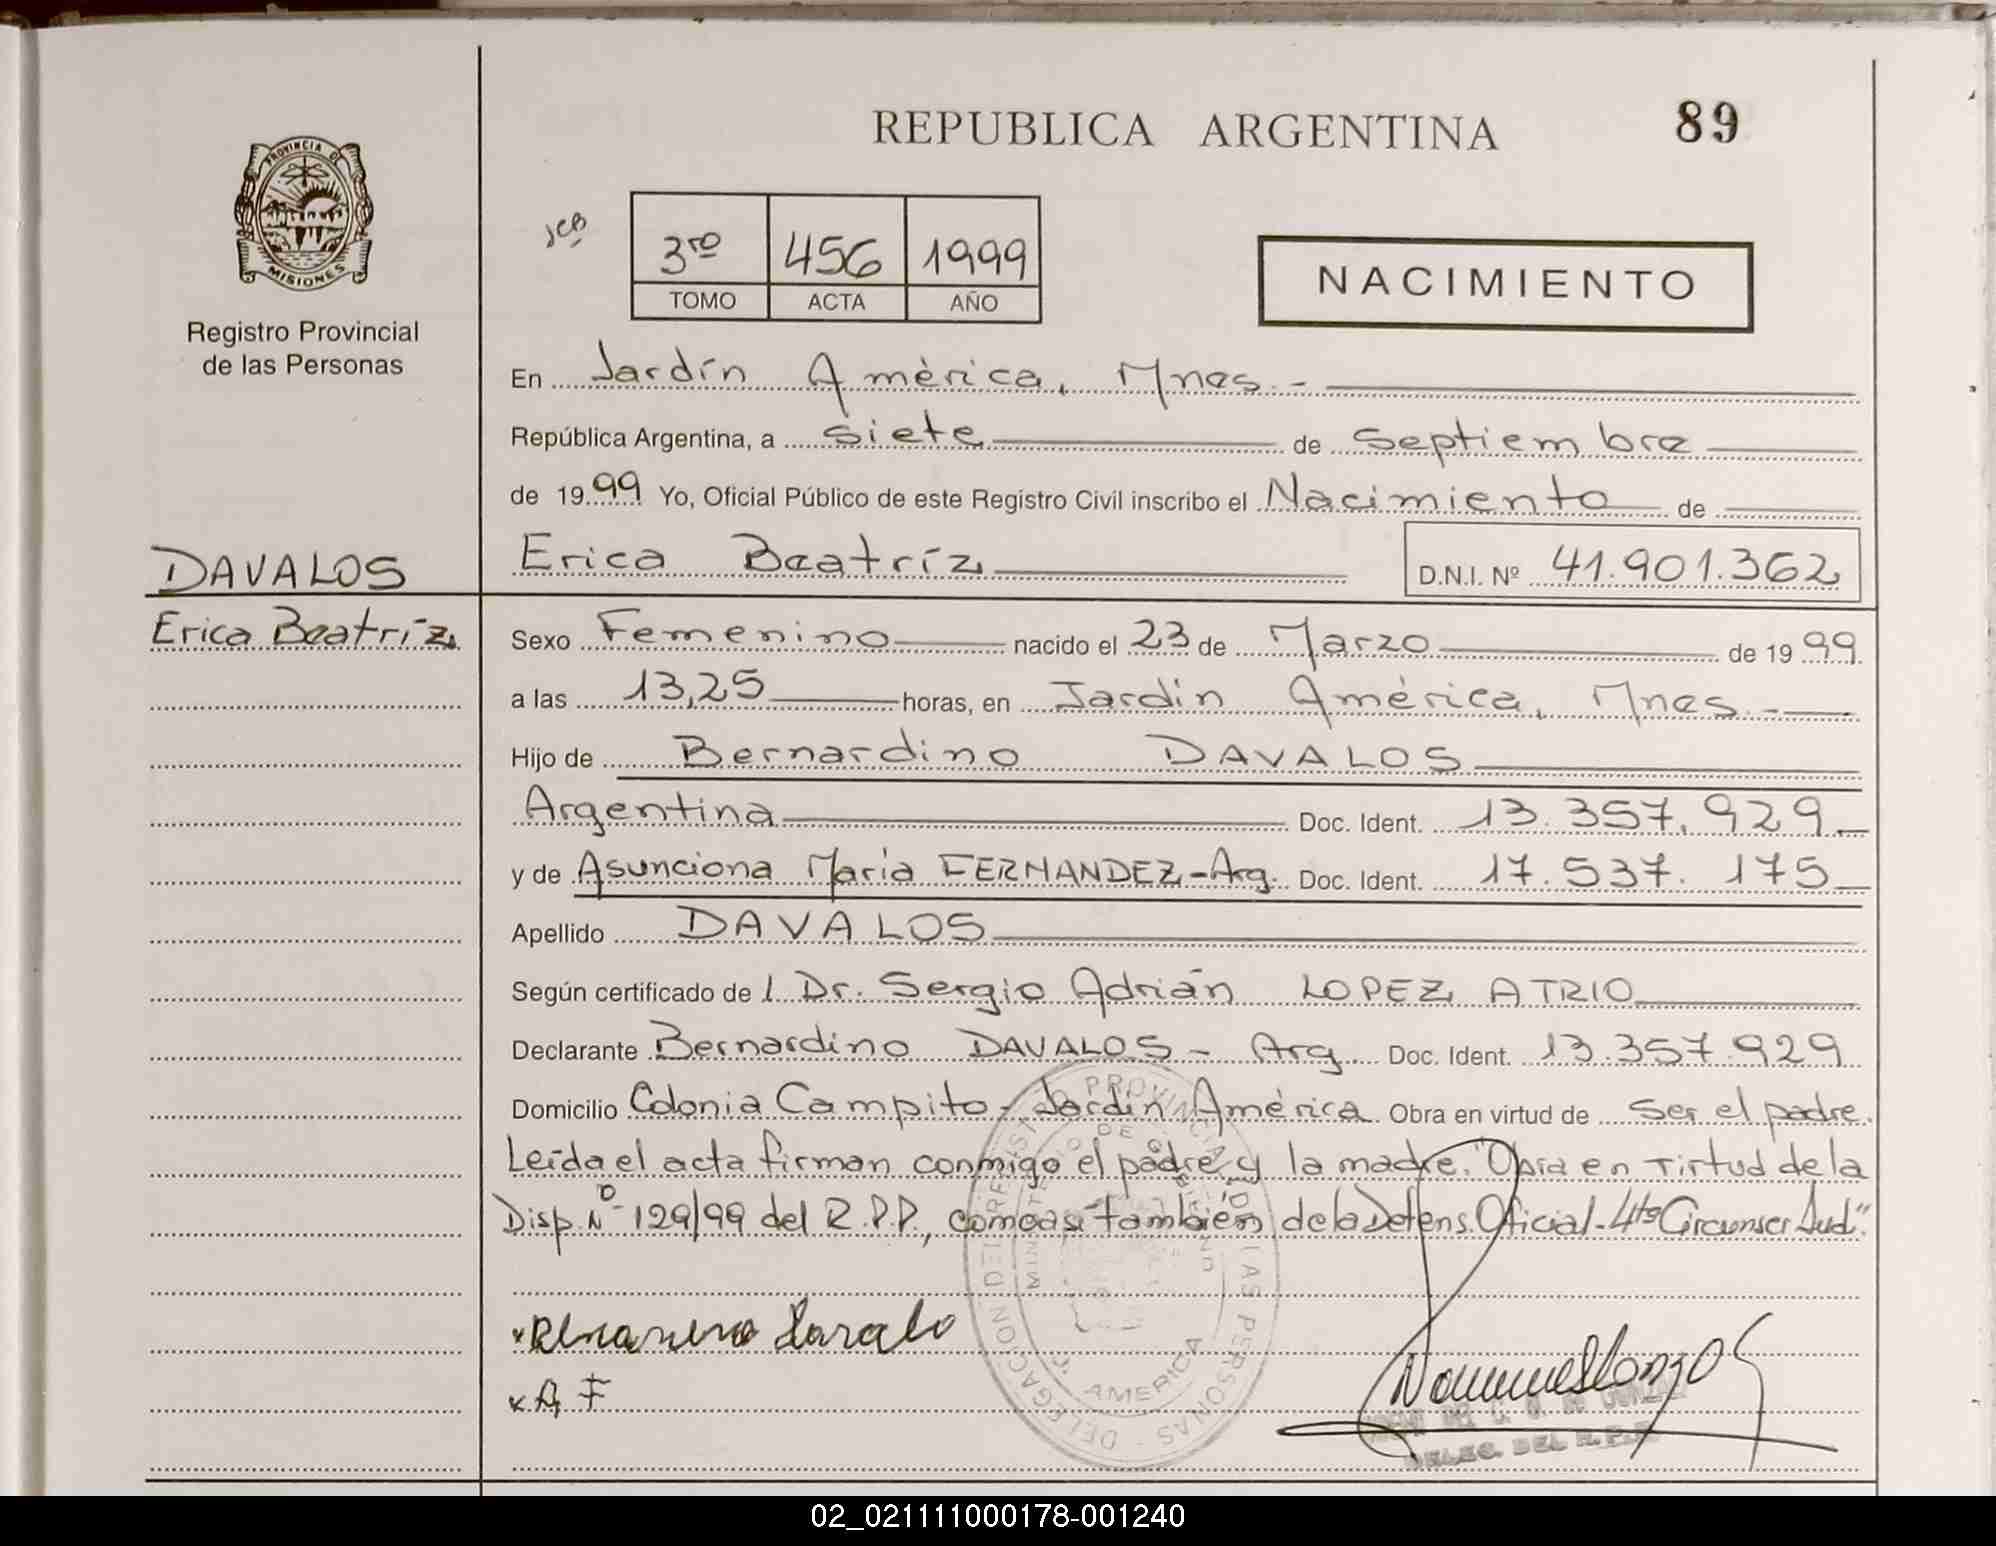 REPUBLICA ARGENTINA
89
PROVINCIA DE
MISIONES
Registro Provincial
de las Personas
3ro 456 1999
TOMO ACTA AÑO
NACIMIENTO
En Jardín América, Mnes.-
República Argentina, a siete de Septiembre
de 1999 Yo, Oficial Público de este Registro Civil inscribo el Nacimiento de
DAVALOS
Erica Beatríz
Erica Beatríz D.N.I. Nº 41.901.362
Sexo Femenino nacido el 23 de Marzo de 1999
a las 13,25 horas, en Jardín América, Mnes.-
Hijo de Bernardino DAVALOS
Argentina Doc. Ident. 13.357.929
y de Asunciona María FERNANDEZ-Arg. Doc. Ident. 17.537.175
Apellido DAVALOS
Según certificado de l Dr. Sergio Adrián LOPEZ ATRIO
Declarante Bernardino DAVALOS - Arg. Doc. Ident. 13.357.929
Domicilio Colonia Campito - Jardín América Obra en virtud de ser el padre.
Leída el acta firman conmigo el padre y la madre. "Obra en virtud de la
Disp. Nº 129/99 del R.P.P., como así también de la Defens. Oficial - 4ta Circunscr Jud".
A F
DELEGACION DEL REGISTRO PROVINCIAL DE LAS PERSONAS
MINISTERIO DE GOBIERNO
J. AMERICA
DELEG. DEL R.P.P.
02_021111000178-001240